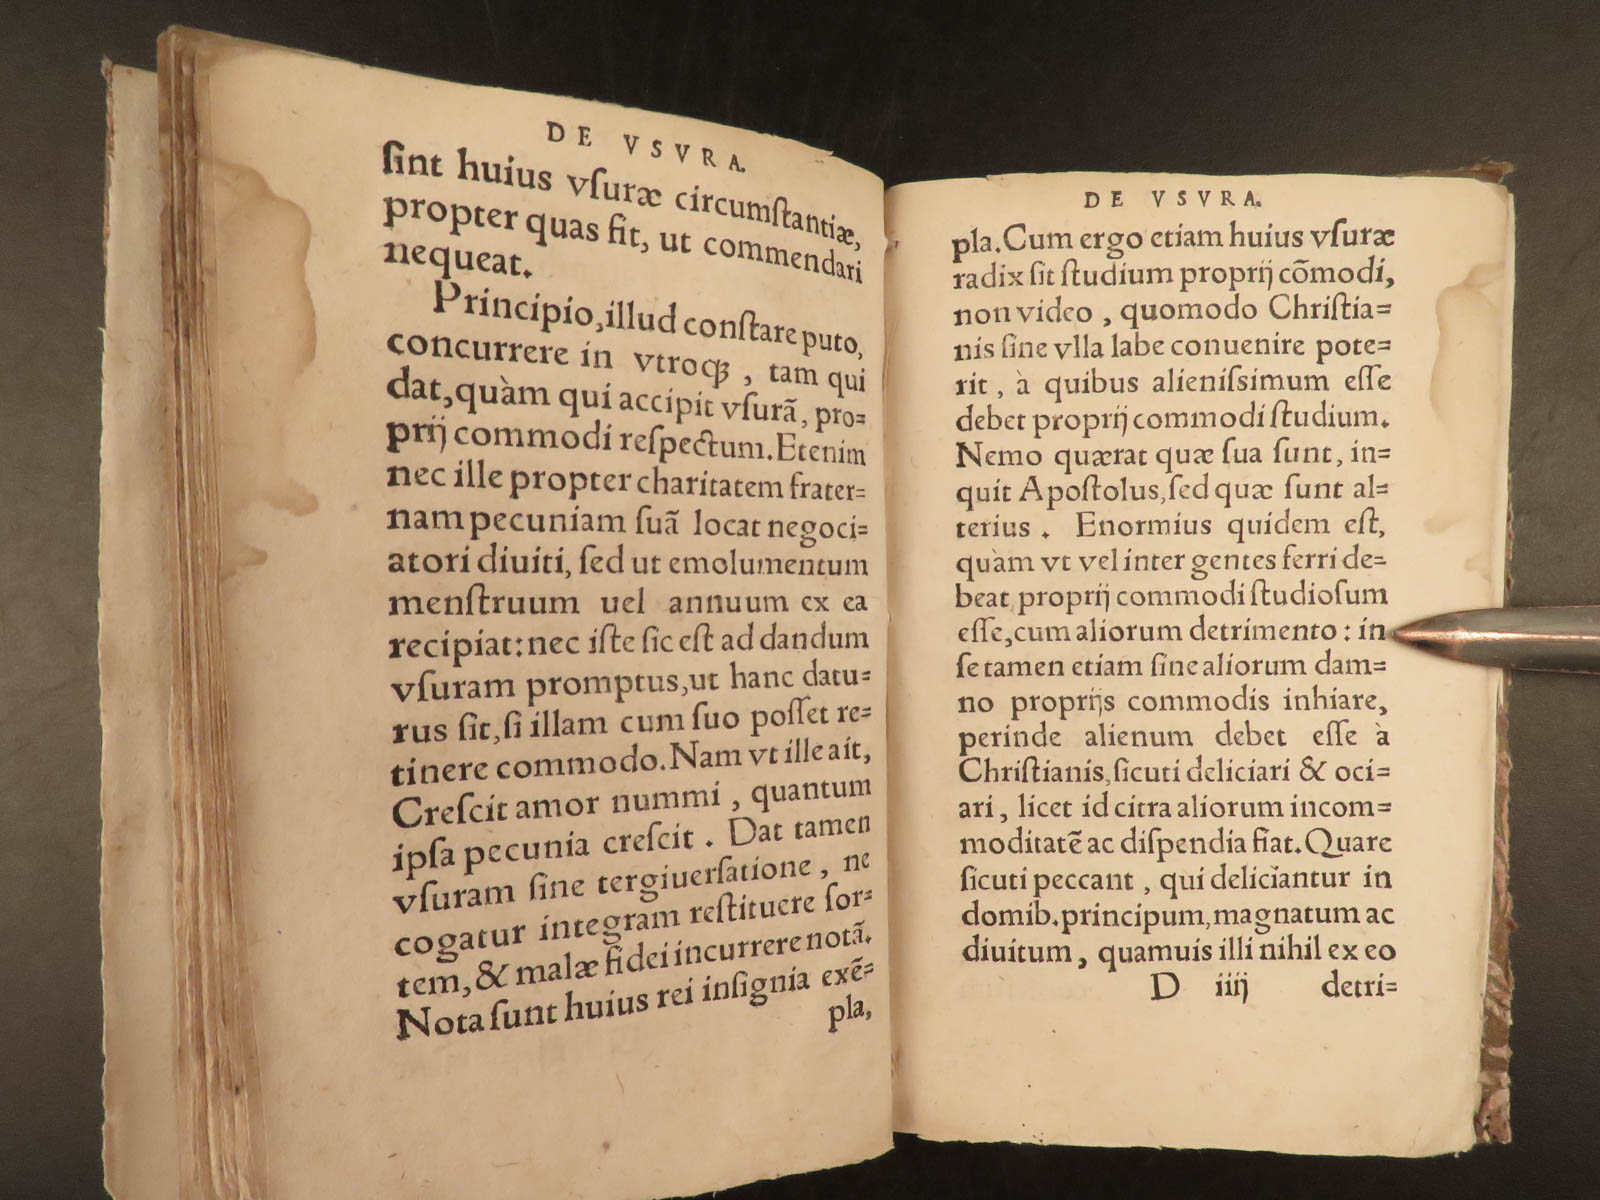 DE VSVRA.
ſint huius vſuræ circumſtantiæ,
propter quas fit, ut commendari
nequeat.
Principio, illud conſtare puto,
concurrere in vtroqꝫ, tam qui
dat, quàm qui accipit vſurã, pro=
prij commodi reſpectum. Etenim
nec ille propter charitatem frater=
nam pecuniam ſuã locat negoci=
atori diuiti, ſed ut emolumentum
menſtruum uel annuum ex ea
recipiat: nec iſte ſic eſt ad dandum
vſuram promptus, ut hanc datu=
rus ſit, ſi illam cum ſuo poſſet re=
tinere commodo. Nam vt ille ait,
Creſcit amor nummi, quantum
ipſa pecunia creſcit. Dat tamen
vſuram ſine tergiuerſatione, ne
cogatur integram reſtituere ſor=
tem, & malæ fidei incurrere notã.
Nota ſunt huius rei inſignia exẽ=
pla,
DE VSVRA.
pla. Cum ergo etiam huius vſuræ
radix ſit ſtudium proprij cõmodi,
non video, quomodo Chriſtia=
nis ſine vlla labe conuenire pote=
rit, à quibus alieniſsimum eſſe
debet proprij commodi ſtudium.
Nemo quærat quæ ſua ſunt, in=
quit Apoſtolus, ſed quæ ſunt al=
terius. Enormius quidem eſt,
quàm vt vel inter gentes ferri de=
beat, proprij commodi ſtudioſum
eſſe, cum aliorum detrimento: in
ſe tamen etiam ſine aliorum dam=
no proprijs commodis inhiare,
perinde alienum debet eſſe à
Chriſtianis, ſicuti deliciari & oci=
ari, licet id citra aliorum incom=
moditatẽ ac diſpendia fiat. Quare
ſicuti peccant, qui deliciantur in
domib. principum, magnatum ac
diuitum, quamuis illi nihil ex eo
D iiij detri=